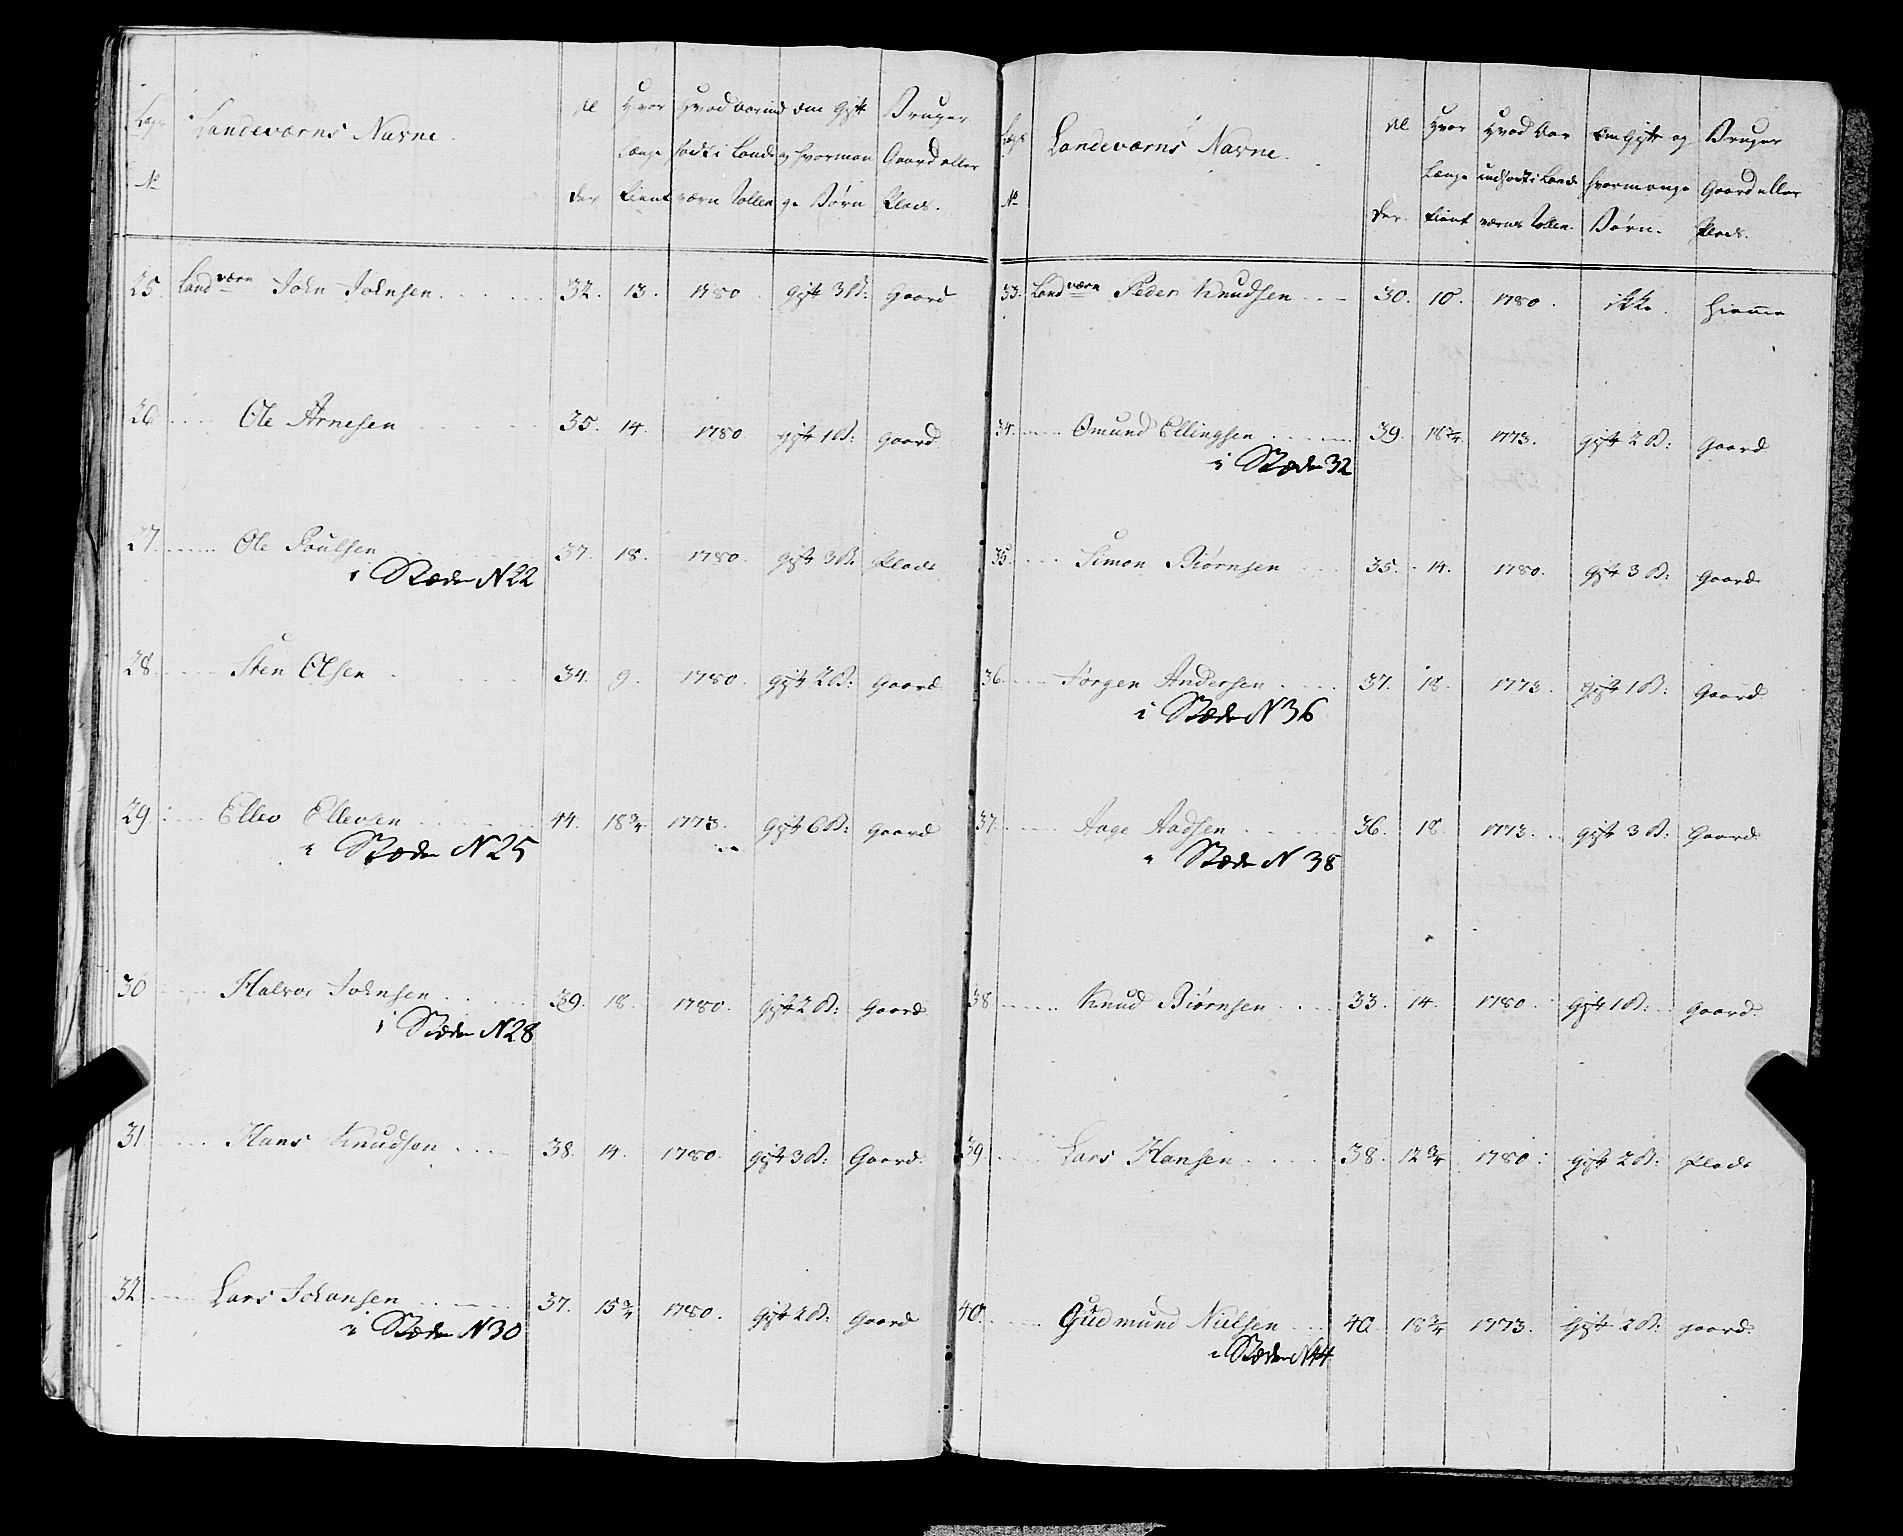 Lægs No | Landeværns Navne. | Al der | Hvor længe tient | Hvad Aar ind sadt i Lande værn Rollen | Om Gift og hvorman ge Børn | Bruger Gaard eller Plads.
25. Landværn John Johnsen. 32. 13. 1780 gift 3 B: Gaard
26 Ole Arnesen 35. 14. 1780 gift 1 B: gaard
27. Ole Poulsen 37. 18. 1780. gift 3 B. Plads
i Stæden N 22
28 Sten Olsen 34. 9. 1780. gift 2 B: gaard
29 Ellev Ellevsen 44. 18 3/4 1773. gift 6 B: gaard
i Stæden N 25
30 Halvor Johnsen 39. 18. 1780. gift 2 B: gaard
i Stæden N 28
31 Hans Knudsen 38. 14. 1780. gift 3 B: Gaard
32 Lars Johansen 37. 15 3/4 1780. gift 2 B: gaard
i Stæden N 30
Lægs No | Landeværns Navne. | Al der. | Hvor Længe tient | Hvad Aar indsadt i Lande værns Rollen. | Om Gift og hvormange Børn. | Bruger Gaard eller Plads.
33. Landværn Peder Knudsen 30. 10. 1780. ikke. hiemme
34. Omund Ellingsen 39. 18 3/4 1773. gift 2 B: gaard
i Stæden 32
35. Simon Biørnsen 35. 14. 1780. gift 3 B: gaard
36. Jørgen Andersen 37. 18. 1773. gift 1 B: gaard
i Stæden N 36
37. Aage Aadsen 36. 18. 1773. gift 3 B: gaard
i Stæden N 38
38 Knud Biørnsen 33. 14. 1780. gift 1 B: gaard.
39 Lars Hansen 38. 12 3/4 1780. gift 2 B: Plads
40. Gudmund Nielsen 40. 18 3/4 1773. gift 2 B: gaard.
i Stæden N 44